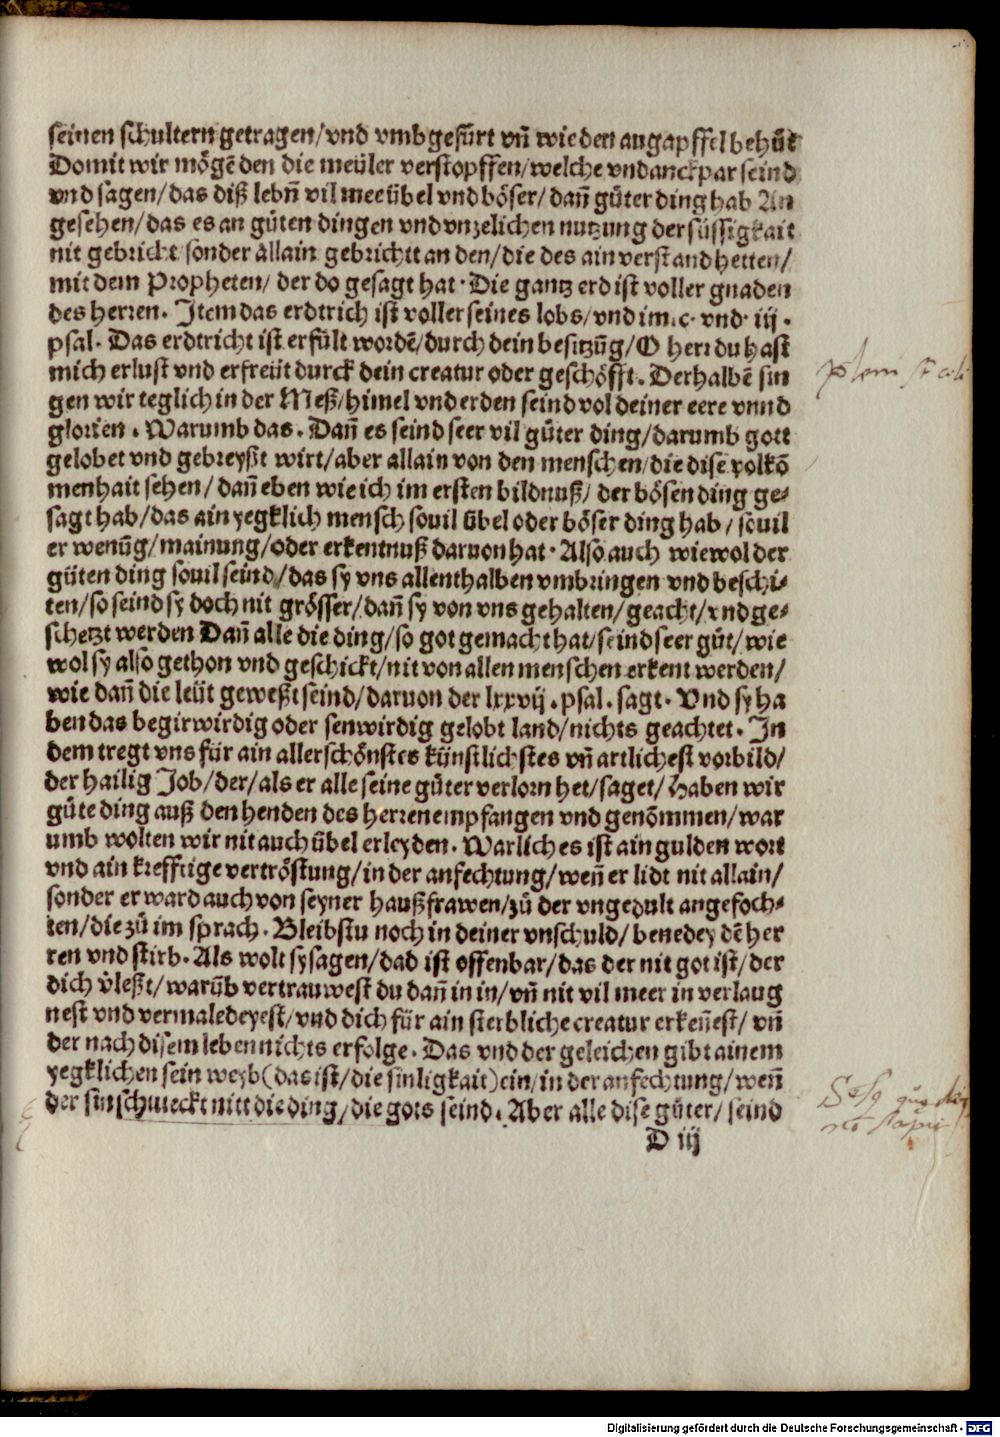 seinen schultern getragen/vnd vmbgefürt vñ wie den augapffel behůt
Domit wir mögē den die meüler verstopffen/welche vndanckpar seind
vnd sagen/das diß lebñ vil mee übel vnd böser/dañ gůter ding hab An
gesehen/das es an gůten dingen vnd vnzelichen nutzung der süssigkait
nit gebricht sonder allain gebrichtt an den/die des ain verstand hetten/
mit dem Propheten/ der do gesagt hat. Die gantz erd ist voller gnaden
des herren. Item das erdtrich ist voller seines lobs/vnd im.c. vnd. iij.
psal. Das erdtricht ist erfült wordē/durch dein besitzũg/O herr du hast
mich erlust vnd erfreüt durck dein creatur oder geschöfft. Derhalbē sin
gen wir teglich in der Meß/himel vnd erden seind vol deiner eere vnnd
glorien. Warumb das. Dañ es seind seer vil gůter ding/darumb gott
gelobet vnd gebreyßt wirt/aber allain von den menschen/die dise volkō
menhait sehen/ dañ eben wie ich im ersten bildnuß/ der bösen ding ge-
sagt hab/das ain yegklich mensch souil übel oder böser ding hab/ souil
er wenũg/mainung/oder erkentnuß daruon hat. Also auch wiewol der
gůten ding souil seind/das sy vns allenthalben vmbringen vnd beschi-
ten/so seind sy doch nit grösser/dañ sy von vns gehalten/geacht/vnd ge-
schetzt werden Dañ alle die ding/so got gemacht hat/seind seer gůt/wie
wol sy also gethon vnd geschickt/nit von allen menschen erkent werden/
wie dañ die leüt geweßt seind/daruon der lxxvij. psal. sagt. Vnd sy ha
ben das begirwirdig oder senwirdig gelobt land/nichts geachtet. In
dem tregt vns für ain allerschönstes künstlichstes vñ artlichest vorbild/
der hailig Job/der/als er alle seine gůter verlorn het/saget/ Haben wir
gůte ding auß den henden des herren empfangen vnd genōmmen/war
umb wolten wir nit auch übel erleyden. Warlich es ist ain gulden wort
vnd ain krefftige vertröstung/in der anfechtung/weñ er lidt nit allain/
sonder er ward auch von seyner haußfrawen/zů der vngedult angefoch-
ten/die zů im sprach. Bleibstu noch in deiner vnschuld/ benedey dē her
ren vnd stirb. Als wolt sy sagen/dad ist offenbar/das der nit got ist/der
dich v̉leßt/warũb vertrauwest du dañ in in/vñ nit vil meer in verlaug
nest vnd vermaledeyest/vnd dich für ain sterbliche creatur erkeñest/ vñ
der nach disem leben nichts erfolge. Das vnd der geleichen gibt ainem
yegklichen sein weyb(das ist/die sinligkait)ein/in der anfechtung/weñ
der sin schmeckt nitt die ding/die gots seind. Aber alle dise gůter/ seind
D iij
Digitalisierung gefördert durch die Deutsche Forschungsgemeinschaft - DFG